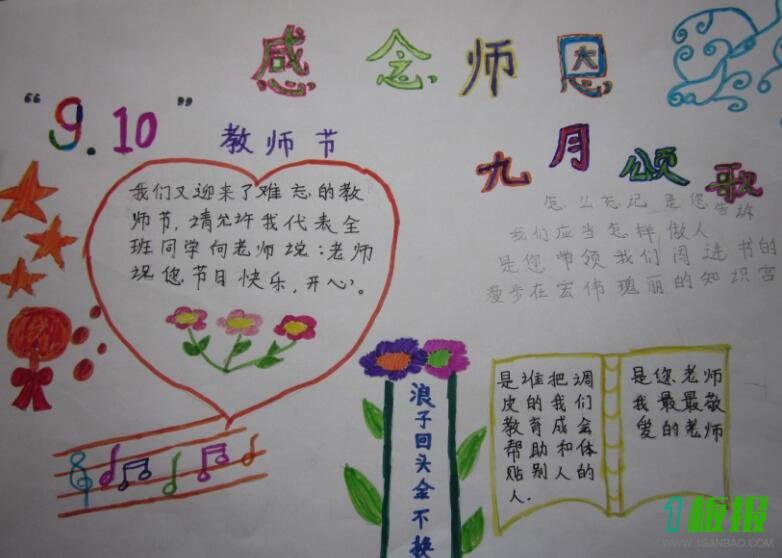 感念师恩
"9.10"
教师节
九月颂歌
我们又迎来了难忘的教
师节,请允许我代表全
班同学向老师说:老师
祝您节日快乐,开心。
怎么忘记是您告诉
我们应当怎样做人
是您带领我们闯进书的
漫步在宏伟瑰丽的知识宫
浪子回头金不换
是谁把调
皮的我们
教育成会
帮助和体
贴别人的
人.
是您,老师
我最最敬
爱的老师
1板报
WWW.1BANBAO.COM